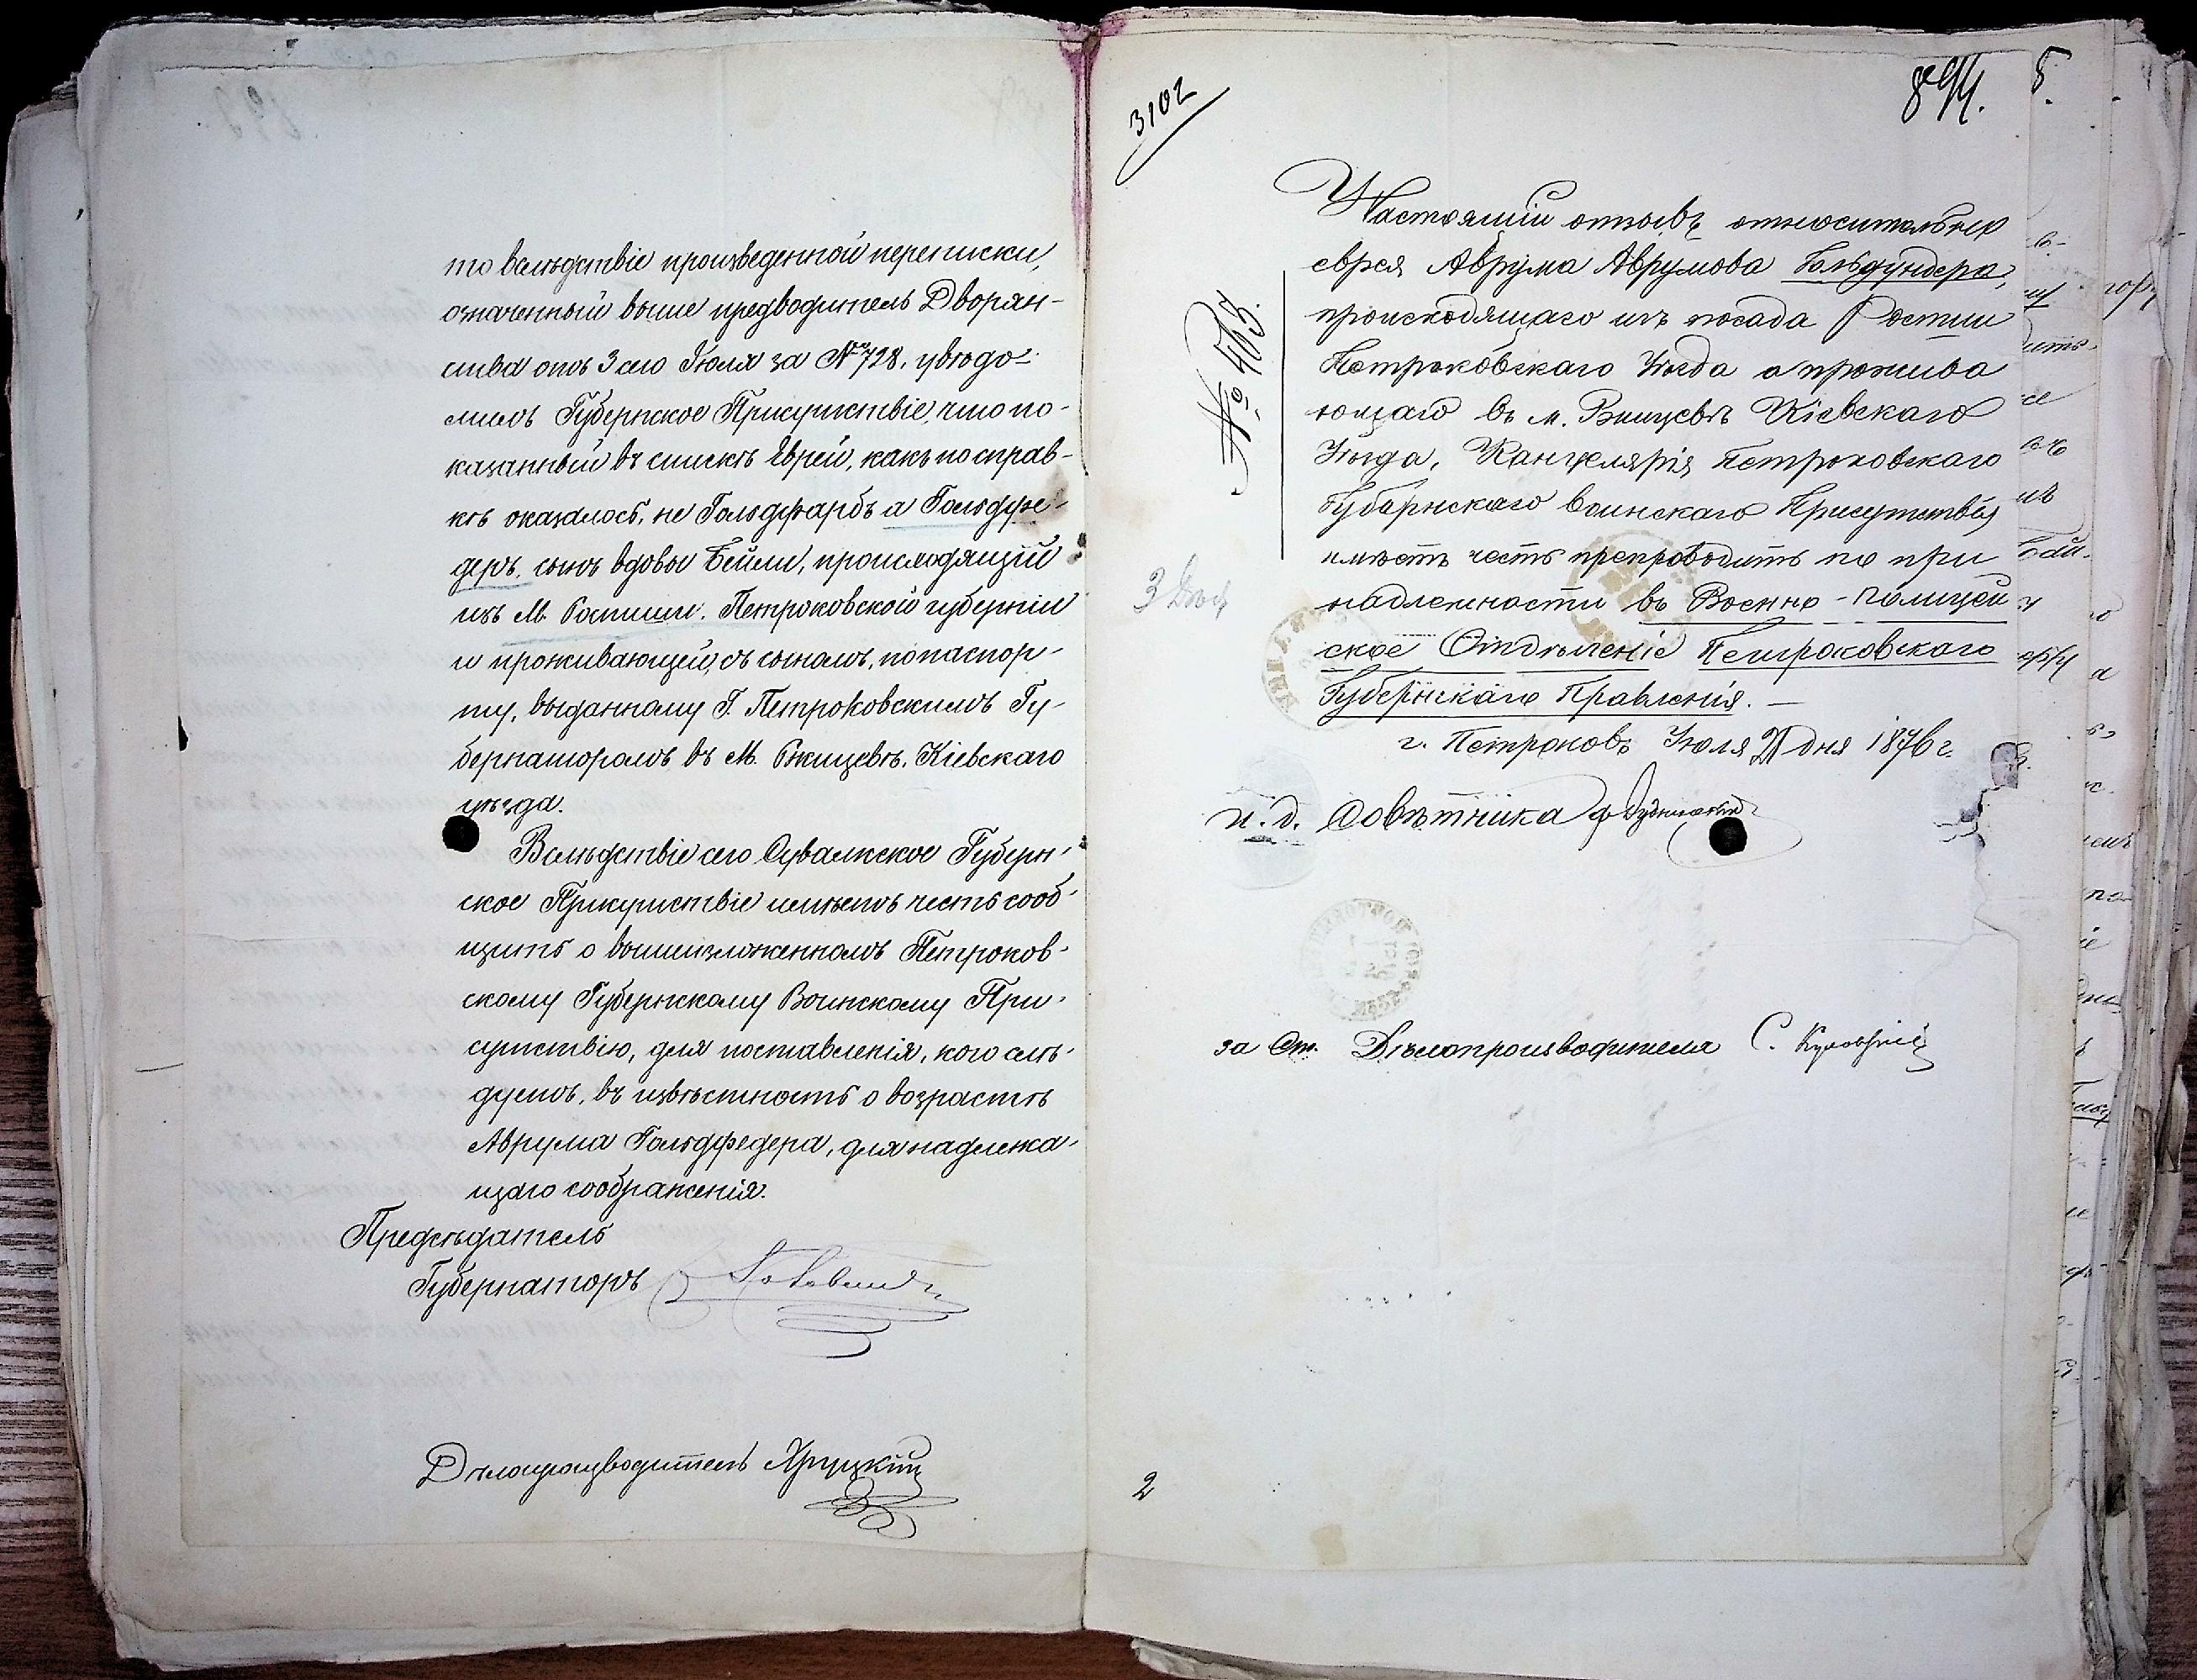 то вслѣдствіе произведенной переписки,
означенный выше предводитель Дворян-
ства отъ 3 сего Іюля за № 728, увѣдо-
милъ Губернское Присутствіе, что по-
казанный въ спискѣ Еврей, какъ по справ-
кѣ оказалось, не Гольдфарбъ а Гольдфе-
деръ, сынъ вдовы Бейли, происходящій
изъ М. Роспши, Петроковской губерніи
и проживающей, съ сыномъ, по паспор-
ту, выданному Г. Петроковскимъ Гу-
бернаторомъ въ М. Ржищевѣ, Кіевскаго
уѣзда.
Вслѣдствіе сего Сувалкское Губерн-
ское Присутствіе имѣетъ честь сооб-
щить о вышеизложенномъ Петроков-
скому Губернскому Воинскому При-
сутствію, для поставленія, кого слѣ-
дуетъ, въ извѣстность о возрастѣ
Аврума Гольдфедера, для надлежа-
щаго соображенія.
Предсѣдатель
Губернаторъ
Дѣлопроизводитель Хруцкій
3102
894. 5.
№ 455.
Настоящій отзывъ относительно
еврея Аврума Аврумова Гольдфндера,
происходящаго изъ посада Роспши
Петроковскаго Уѣзда а прожива
ющаго въ м. Вжищевѣ Кіевскаго
Уѣзда, Канцелярія Петроковскаго
Губернскаго воинскаго Присутствія
имѣетъ честь препроводить по при
надлежности въ Военно-полицей
ское Отдѣленіе Петроковскаго
Губернскаго Правленія. —
г. Петроковъ Іюля 21 дня 1876 г.
и. д. Совѣтника
за Ст. Дѣлопроизводителя С.
2